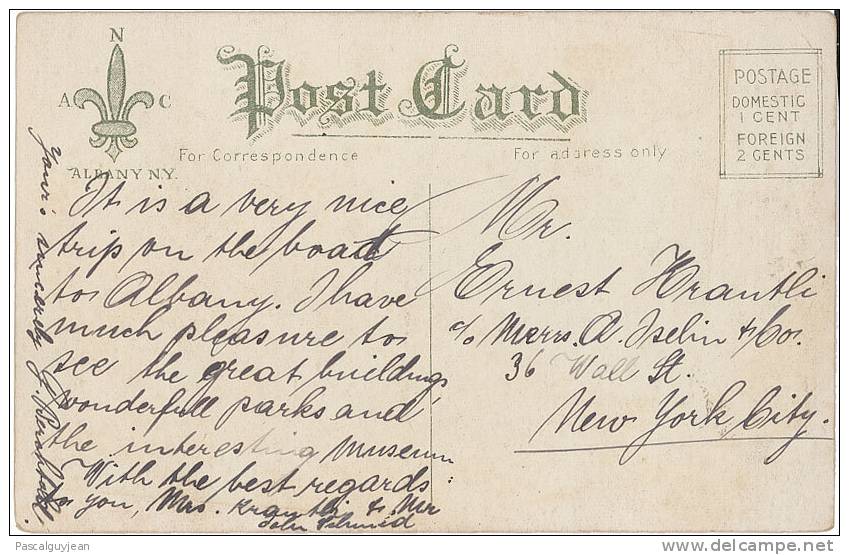 N
A C
ALBANY N.Y.
Post Card
For Correspondence
For address only
POSTAGE
DOMESTIC
1 CENT
FOREIGN
2 CENTS
It is a very nice
trip on the boat
to Albany. I have
much pleasure to
see the great buildings,
wonderfull parks and
the interesting Museum
With the best regards
to you, Mrs. Krantli & Mr
John Schmid
Your's sincerely J.
Mr.
Ernest Krantli
c/o Messrs. A. Iselin & Co.
36 Wall St.
New York City.
Pascalguyjean
www.delcampe.net